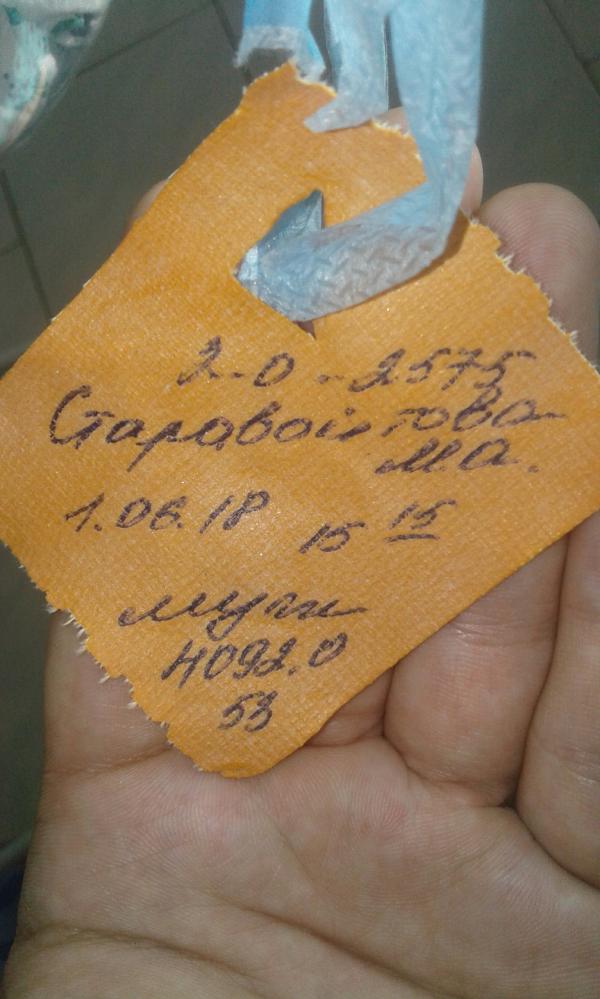 2-0-2575
Старовойтова
М.А.
1.06.18 15 15
муж
4092.0
53